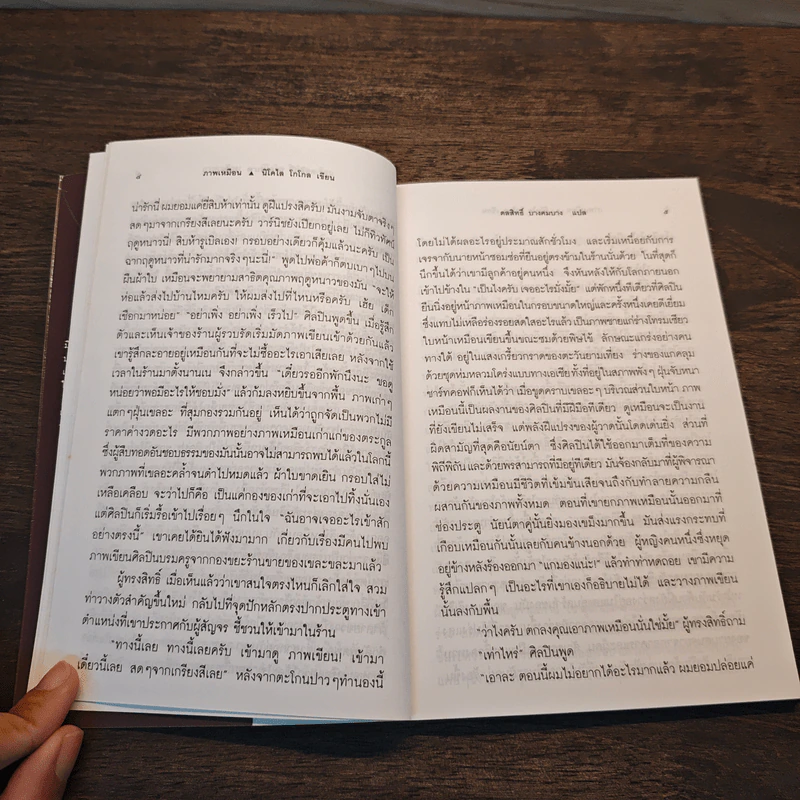 ๔ ภาพเหมือน ▲ นิโคไล โกโกล เขียน
น่ารักนี่ ผมยอมแค่ยี่สิบห้าเท่านั้น ดูฝีแปรงสิครับ! มันงามจับตาจริงๆ
สดๆมาจากเกรียงสีเลยนะครับ วาร์นิชยังเปียกอยู่เลย ไม่ก็ทิวทัศน์
ฤดูหนาวนี่! สิบห้ารูเบิลเอง! กรอบอย่างเดียวก็คุ้มแล้วนะครับ เป็น
ฉากฤดูหนาวที่น่ารักมากจริงๆนะนี่!” พูดไปพ่อค้าก็ตบเบาๆไปบน
ผืนผ้าใบ เหมือนจะพยายามสาธิตคุณภาพฤดูหนาวของมัน “จะให้
ห่อแล้วส่งไปบ้านไหมครับ ให้ผมส่งไปที่ไหนหรือครับ เฮ้ย เด็ก
เชือกมาหน่อย” “อย่าเพิ่ง อย่าเพิ่ง เร็วไป” ศิลปินพูดขึ้น เมื่อรู้สึก
ตัวและเห็นเจ้าของร้านผู้รวบรัดเริ่มมัดภาพเขียนเข้าด้วยกันแล้ว
เขารู้สึกละอายอยู่เหมือนกันที่จะไม่ซื้ออะไรเอาเสียเลย หลังจากใช้
เวลาในร้านมาตั้งนานเน จึงกล่าวขึ้น “เดี๋ยวรออีกพักนึงนะ ขอดู
หน่อยว่าพอมีอะไรให้ชอบมั่ง” แล้วก้มลงหยิบขึ้นจากพื้น ภาพเก่าๆ
แตกๆฝุ่นเขลอะ ที่สุมกองรวมกันอยู่ เห็นได้ว่าถูกจัดเป็นพวกไม่มี
ราคาค่างวดอะไร มีพวกภาพอย่างภาพเหมือนเก่าแก่ของตระกูล
ซึ่งผู้สืบทอดอันชอบธรรมของมันนั้นอาจไม่สามารถพบได้แล้วในโลกนี้
พวกภาพที่เขลอะคล้ำจนดำไปหมดแล้ว ผ้าใบขาดเยิน กรอบใส่ไม่
เหลือเคลือบ จะว่าไปก็คือ เป็นแค่กองของเก่าที่จะเอาไปทิ้งนั่นเอง
แต่ศิลปินก็เริ่มรื้อเข้าไปเรื่อยๆ นึกในใจ “ฉันอาจเจออะไรเข้าสัก
อย่างตรงนี้” เขาเคยได้ยินได้ฟังมามาก เกี่ยวกับเรื่องมีคนไปพบ
ภาพเขียนศิลปินบรมครูจากกองขยะร้านขายของเขละขละมาแล้ว
ผู้ทรงสิทธิ์ เมื่อเห็นแล้วว่าเขาสนใจตรงไหนก็เลิกใส่ใจ สวม
ท่าวางตัวสำคัญขึ้นใหม่ กลับไปที่จุดปักหลักตรงปากประตูทางเข้า
ตำแหน่งที่เขาประกาศกับผู้สัญจร ชี้ชวนให้เข้ามาในร้าน
“ทางนี้เลย ทางนี้เลยครับ เข้ามาดู ภาพเขียน! เข้ามา
เดี๋ยวนี้เลย สดๆจากเกรียงสีเลย” หลังจากตะโกนปาวๆทำนองนี้
ดลสิทธิ์ บางคมบาง แปล ๕
โดยไม่ได้ผลอะไรอยู่ประมาณสักชั่วโมง และเริ่มเหนื่อยกับการ
เจรจากับนายหน้าซอมซ่อที่ยืนอยู่ตรงข้ามในร้านนั่นด้วย ในที่สุดก็
นึกขึ้นได้ว่าเขามีลูกค้าอยู่คนหนึ่ง จึงหันหลังให้กับโลกภายนอก
เข้าไปข้างใน “เป็นไงครับ เจออะไรมั่งมั้ย” แต่พักหนึ่งทีเดียวที่ศิลปิน
ยืนนิ่งอยู่หน้าภาพเหมือนในกรอบขนาดใหญ่และครั้งหนึ่งเคยดีเยี่ยม
ซึ่งแทบไม่เหลือร่องรอยสดใสอะไรแล้ว เป็นภาพชายแก่ร่างโทรมเซียว
ใบหน้าเหมือนเขียนขึ้นขณะซมด้วยพิษไข้ ลักษณะแกร่งอย่างคน
ทางใต้ อยู่ในแสงเกรี้ยวกราดของตะวันยามเที่ยง ร่างของแกคลุม
ด้วยชุดห่มหลวมโคร่งแบบทางเอเชีย ทั้งที่อยู่ในสภาพพังๆ ฝุ่นจับหนา
ชาร์ทคอฟก็เห็นได้ว่า เมื่อขูดคราบเขลอะๆ บริเวณส่วนใบหน้า ภาพ
เหมือนนี้เป็นผลงานของศิลปินที่มีฝีมือทีเดียว ดูเหมือนจะเป็นงาน
ที่ยังเขียนไม่เสร็จ แต่พลังฝีแปรงของผู้วาดนั้นโดดเด่นยิ่ง ส่วนที่
ผิดสามัญที่สุดคือนัยน์ตา ซึ่งศิลปินได้ใช้ออกมาเต็มที่ของความ
พิถีพิถัน และด้วยพรสามารถที่มีอยู่ทีเดียว มันจ้องกลับมาที่ผู้พิจารณา
ด้วยความเหมือนมีชีวิตที่เข้มข้นเสียจนถึงกับทำลายความกลืน
ผสานกันของภาพทั้งหมด ตอนที่เขายกภาพเหมือนนั้นออกมาที่
ช่องประตู นัยน์ตาคู่นั้นยิ่งมองเขม็งมากขึ้น มันส่งแรงกระทบที่
เกือบเหมือนกันนั้นเลยกับคนข้างนอกด้วย ผู้หญิงคนหนึ่งซึ่งหยุด
อยู่ข้างหลังร้องออกมา “แกมองแน่ะ!” แล้วทำท่าหดถอย เขามีความ
รู้สึกแปลกๆ เป็นอะไรที่เขาเองก็อธิบายไม่ได้ และวางภาพเขียน
นั้นลงกับพื้น
“ว่าไงครับ ตกลงคุณเอาภาพเหมือนนั่นใช่มั้ย” ผู้ทรงสิทธิ์ถาม
“เท่าไหร่” ศิลปินพูด
“เอาละ ตอนนี้ผมไม่อยากได้อะไรมากแล้ว ผมยอมปล่อยแค่